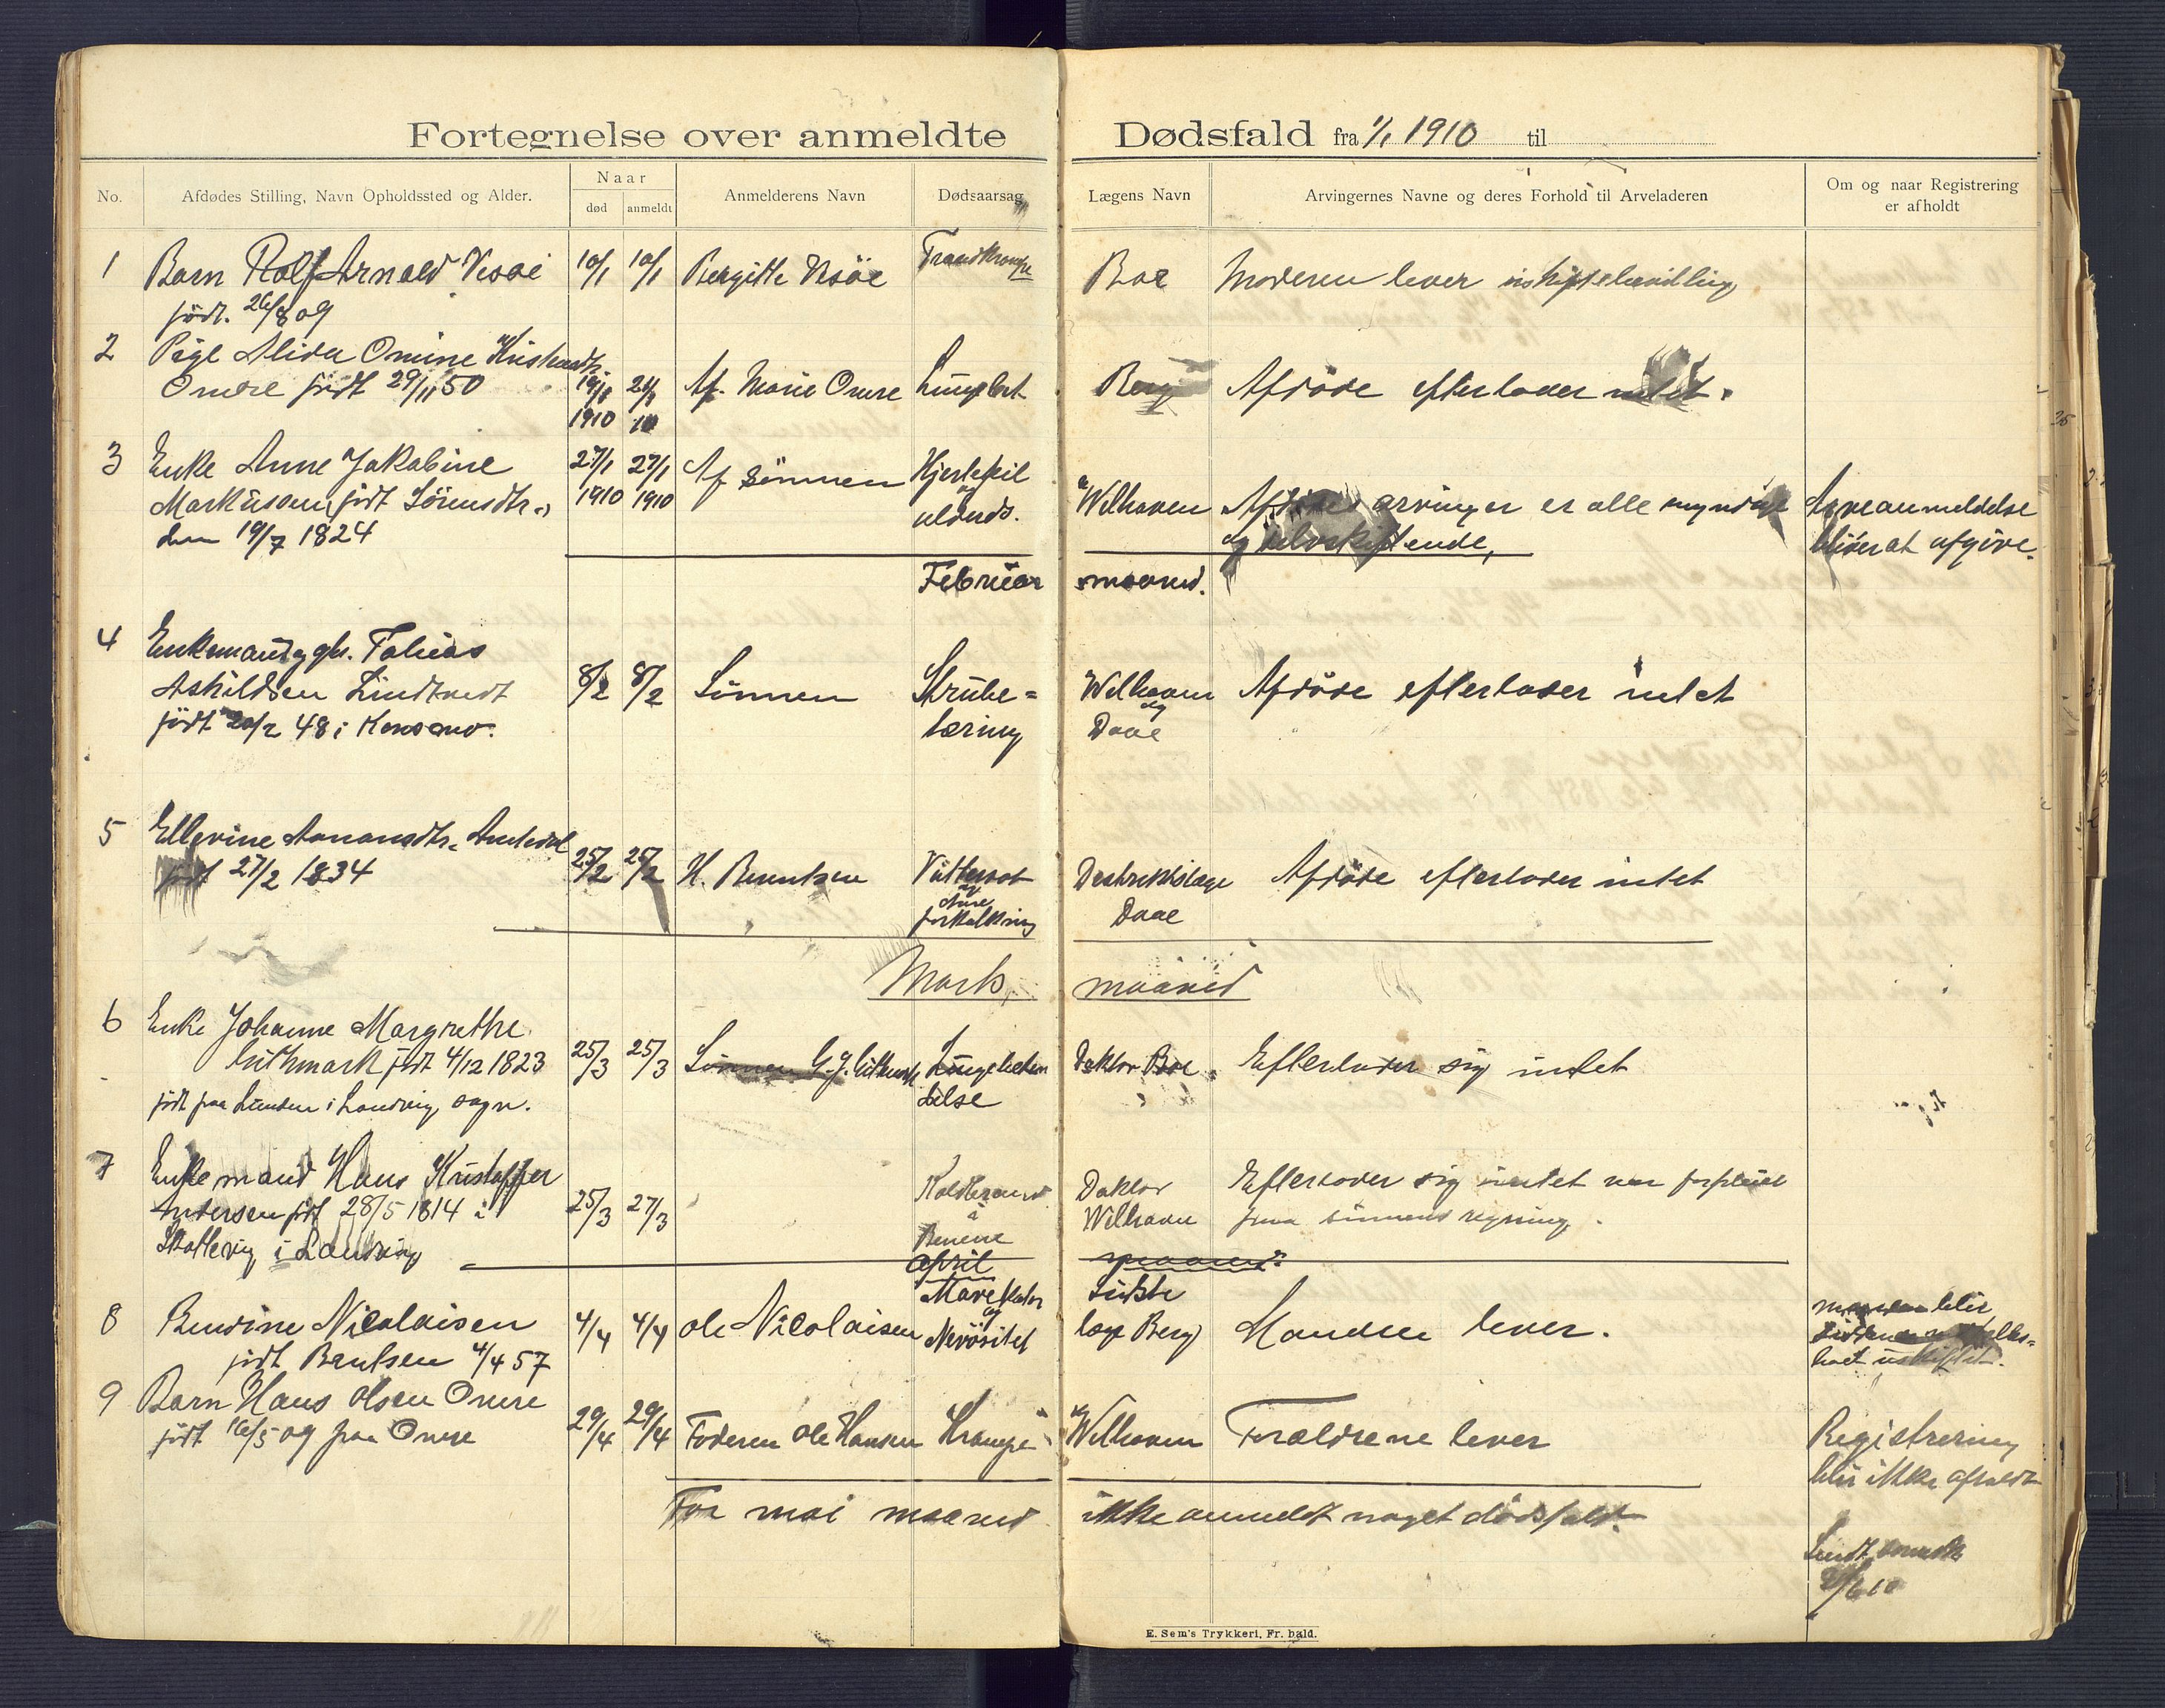 Fortegnelse over anmeldte Dødsfald fra 1/1 1910 til
No. Afdødes Stilling, Navn Opholdssted og Alder. Naar død anmeldt Anmelderens Navn Dødsaarsag Lægens Navn Arvingernes Navne og deres Forhold til Arveladeren Om og naar Registrering er afholdt
1 Barn Rolf Arnold 10/1 10/1 Bergitte Boe Moderen lever
født. 26/8 09
2 Pige Alida Omine
Omre født 29/11 50 19/1 1910 Af. Marie Omre Berg Afdøde efterlader intet.
3 Enke Anne Jakobine 27/1 1910 27/1 1910 Af Sönnen Hjertefeil og Wilhaven Afdødes arvinger er alle myndige Arveanmeldelse
Markusen født Sörensdtr. og selvskiftende, bliver at afgive.
den 19/7 1824
Februar maaned.
4 Enkemand Tobias
Askildsen Lindtvedt 8/2 8/2 Sönnen Strube= Wilhaven og Afdöde efterlader intet
födt 20/2 48 i tæring Daae
5 Ellevine
født 27/2 1834 25/2 25/2 H. Berntsen Vattersot og Distriktslæge Afdöde efterlader intet
forkalkning Daae
Marts maaned
6 Enke Johanne Margrethe
födt 4/12 1823 25/3 25/3 Sönnen G. J. Lungebetæn Doktor Boe Efterlader sig intet
født paa i Landvig sogn. delse
7 Enkemand Hans Kristoffer Koldbrand Doktor Efterlader sig intet var forpleiet
Andersen født 28/5 1814 i 25/3 27/3 i Wilhaven paa sönnens regning.
i Landvig Benene
April maaned
8 Bendine Nicolaisen 4/4 4/4 Ole Nicolaisen Mavekatar og læge Berg Manden lever.
født Bentsen 4/4 57 Nevösitet
9 Barn Hans Olsen Omre
født 16/5 09 paa Omre 29/4 29/4 Faderen Ole Hansen Krampe Wilhaven Forældrene lever Registrering
blir ikke afholdt
For mai maaned ikke anmeldt noget dödsfald.
E. Sem's Trykkeri, Fr.hald.